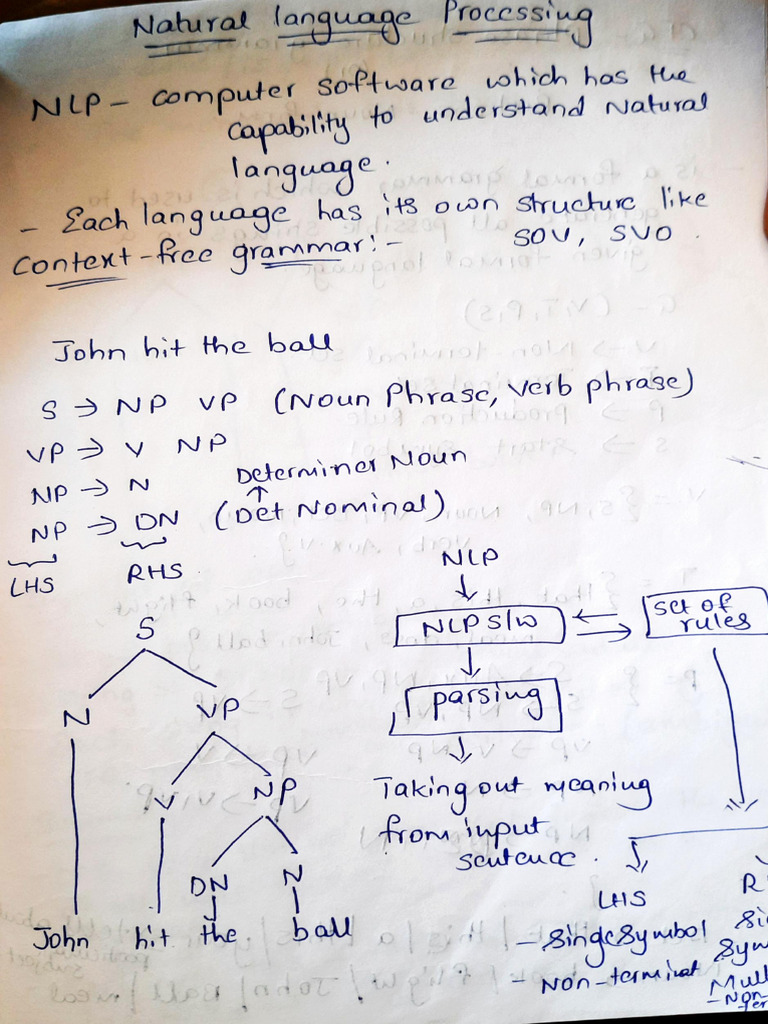 Natural language Processing
NLP - computer software which has the
capability to understand Natural
language.
- Each language has its own structure like
SOV, SVO.
context-free grammar:-
John hit the ball
S → NP VP (Noun Phrase, Verb phrase)
VP → V NP
NP → N
Determiner Noun
↑
NP → DN (Det Nominal)
LHS RHS
NLP
↓
NLP S/W
set of
rules
↓
parsing
↓
Taking out meaning
from input
sentence.
S
N VP
V NP
DN N
John hit the ball
LHS
- Single Symbol
- Non-terminal
R
Mul
- Non-